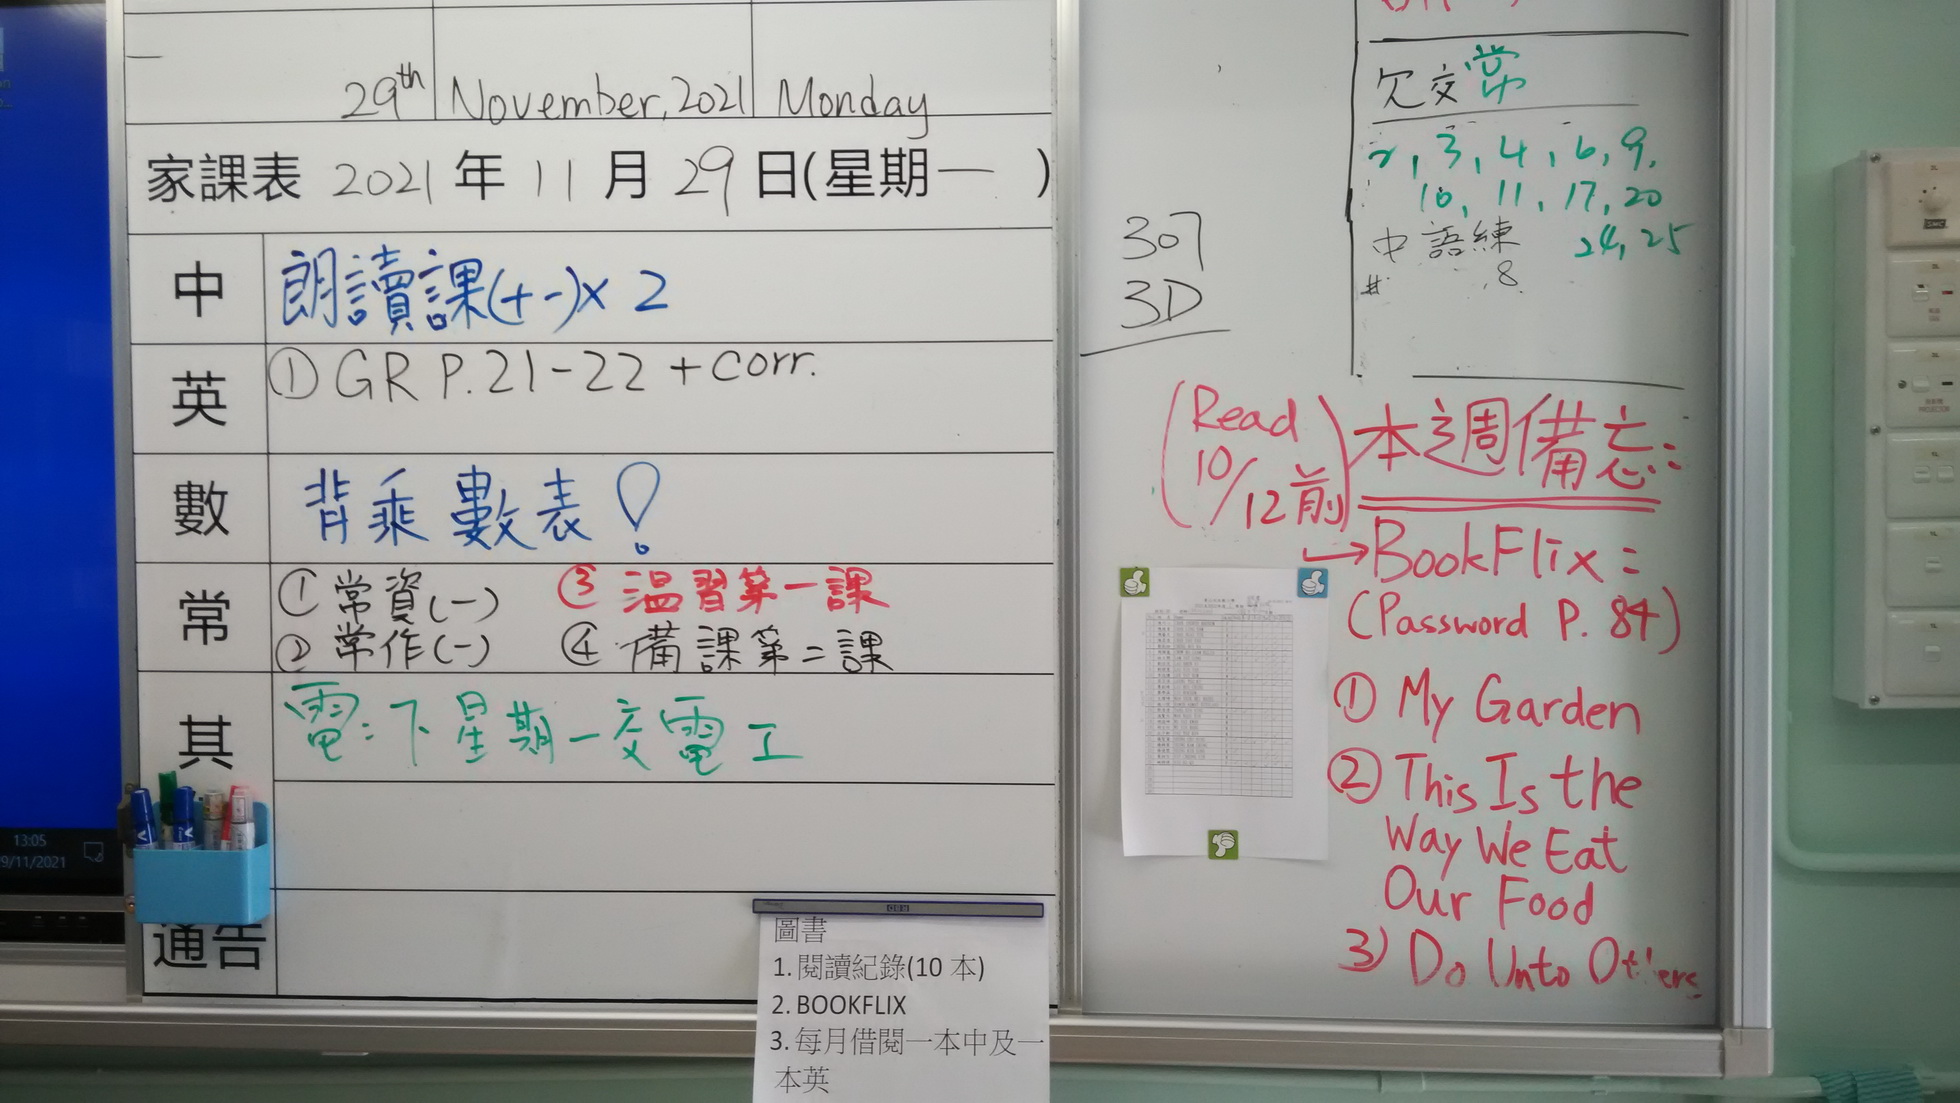 29th November, 2021 Monday
家課表 2021 年 11 月 29 日(星期一 )
中 朗讀課(十一)x 2
英 ① GR P.21-22 + corr.
數 背乘數表!
常 ① 常資(一) ③ 溫習第一課
② 常作(一) ④ 備課第二課
其 電:下星期一交電工
通告
圖書
1. 閱讀紀錄(10 本)
2. BOOKFLIX
3. 每月借閱一本中及一
本英
13:05
9/11/2021
307
3D
欠交常
2, 3, 4, 6, 9,
10, 11, 17, 20
24, 25
中語練
# 8
(Read
10/12前)
本週備忘:
→BookFlix:
(Password P. 84)
① My Garden
② This Is the
Way We Eat
Our Food
3) Do Unto Others